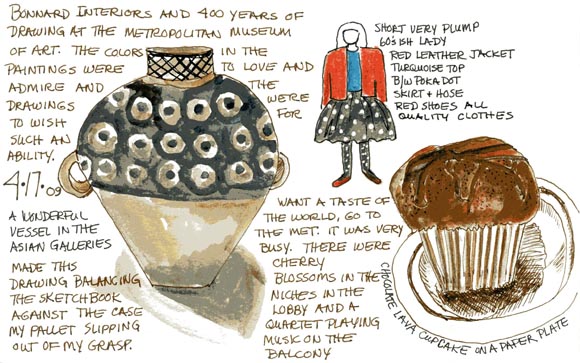 Bonnard Interiors and 400 years of
drawing at the Metropolitan Museum
of Art. The colors in the
paintings were to love and
admire and the
drawings were
to wish for
such an
ability.
4.17.09
A wonderful
vessel in the
Asian Galleries
Made this
drawing balancing
the sketchbook
against the case
my pallet slipping
out of my grasp.
Short very plump
60's ish lady
red leather jacket
turquoise top
B/W polka dot
skirt + hose
red shoes all
quality clothes
Want a taste of
the world, go to
the Met. It was very
busy. There were
cherry
blossoms in the
niches in the
lobby and a
quartet playing
music on the
balcony
Chocolate lava cupcake on a paper plate